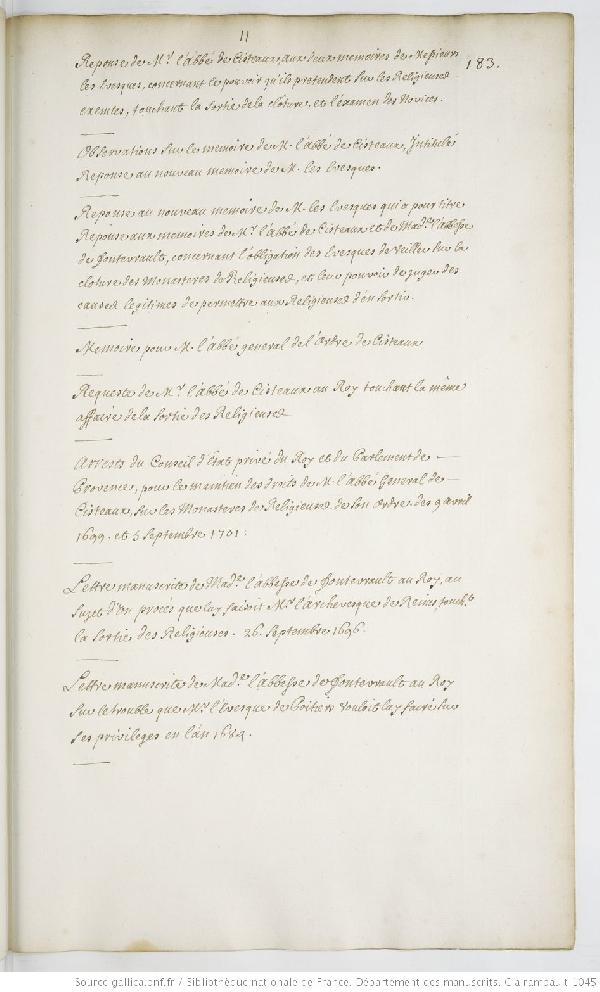 11
183.
Reponse de Mr. l'abbé de Cisteaux, aux deux memoires de Messieurs
les Evesques, concernant le pouvoir qu'ils pretendent sur les Religieuses
exemtes, touchant la sortie de la cloture, et l'examen des Novices.
Observations sur le memoire de M. l'abbé de Cisteaux, Intitulé
Reponse au nouveau memoire de M. les Evesques.
Reponse au nouveau memoire de M. les Evesques qui a pour titre
Reponse aux memoires de Mr. l'abbé de Cisteaux et de Made. l'abbesse
de ffontevrault, concernant l'obligation des Evesques de veiller sur la
cloture des Monasteres de Religieuses, et leur pouvoir de juger des
causes legitimes de permettre aux Religieuses d'en sortir.
Memoire pour M. l'abbé general de l'Ordre de Cisteaux
Requeste de Mr. l'abbé de Cisteaux au Roy touchant la même
affaire de la sortie des Religieuses
Arrests du Conseil d'Etat privé du Roy et du Parlement de
Provence, pour le maintien des droits de M. l'abbé General de
Cisteaux sur les Monasteres de Religieuses de son ordre, des 9 avril
1699. et 5 Septembre 1701.
Lettre manuscrite de Made. l'abbesse de ffontevrault au Roy, au
sujet d'un procés que luy faisoit Mr. l'archevesque de Reims, toucht.
la sortie des Religieuses. 26. Septembre 1696.
Lettre manuscrite de Made. l'abbesse de ffontevrault au Roy
sur le trouble que Mr. l'Evesque de Poitiers vouloit luy faire sur
ses privileges en l'an
Source gallica.bnf.fr / Bibliothèque nationale de France. Département des manuscrits. Clairambault 1045